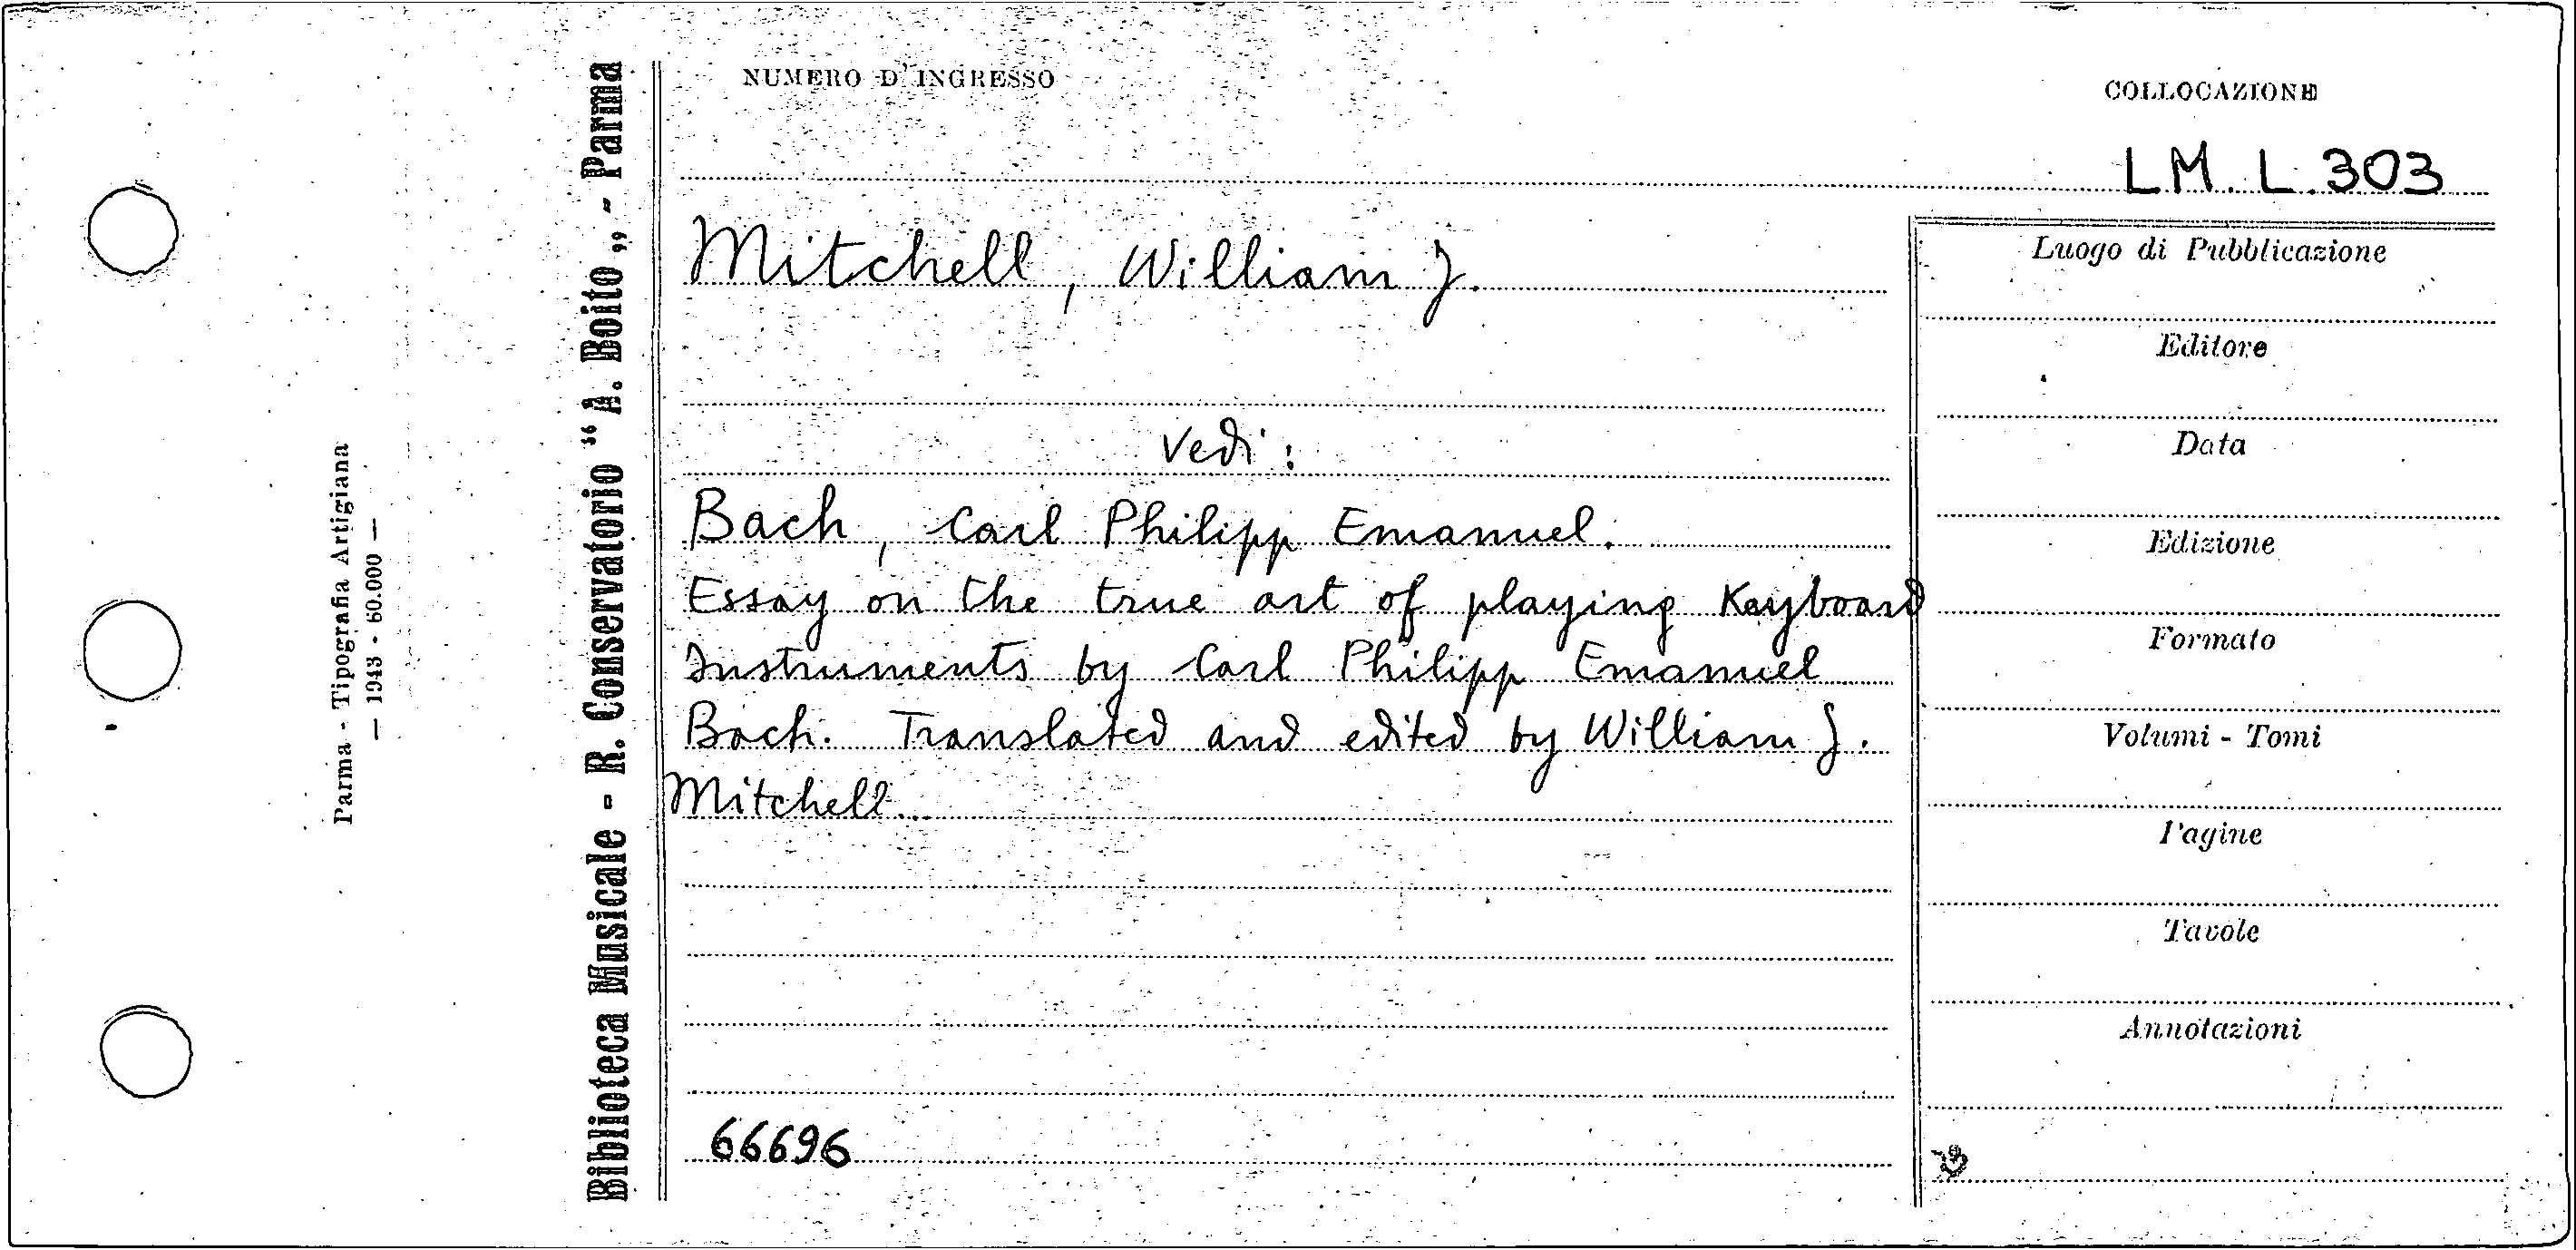 NUMERO D'INGRESSO
COLLOCAZIONE
LM. L. 303
Mitchell, William J.
Vedi:
Bach, Carl Philipp Emanuel.
Essay on the true art of playing Keyboard
Instruments by Carl Philipp Emanuel
Bach. Translated and edited by William J.
Mitchell.
66696
Luogo di Pubblicazione
Editore
Data
Edizione
Formato
Volumi - Tomi
Pagine
Tavole
Annotazioni
Biblioteca Musicale - R. Conservatorio “A. Boito„ - Parma
Parma - Tipografia Artigiana
— 1943 - 60.000 —